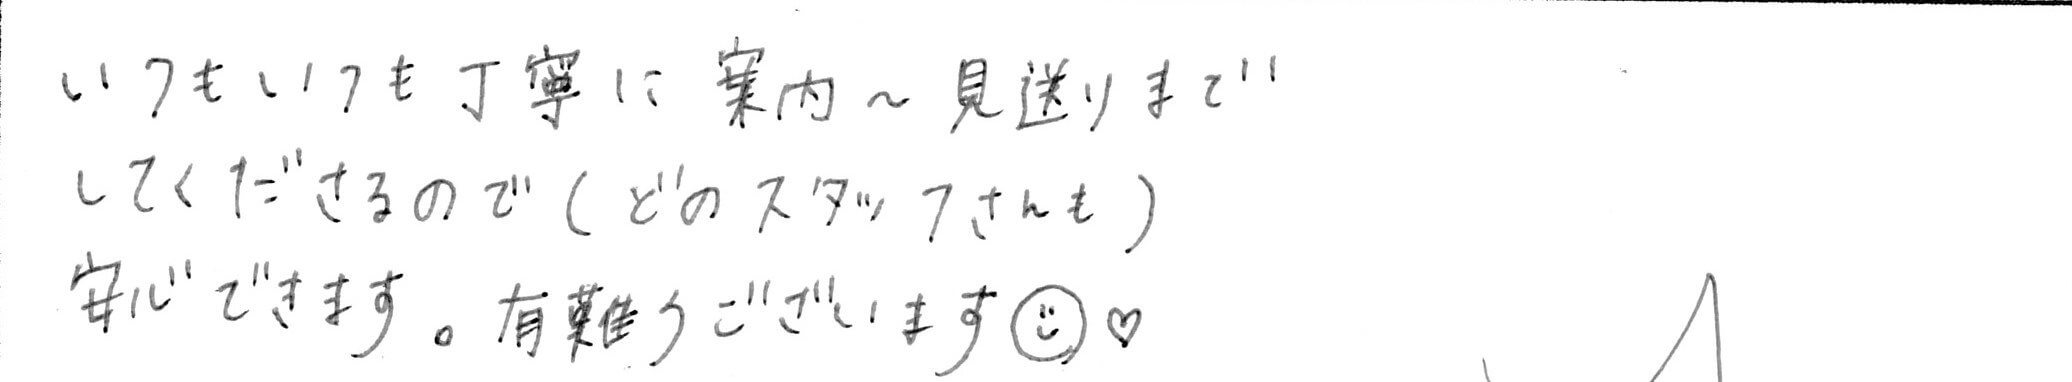 いつもいつも丁寧に案内～見送りまで
してくださるので(どのスタッフさんも)
安心できます。有難うございます☺♡